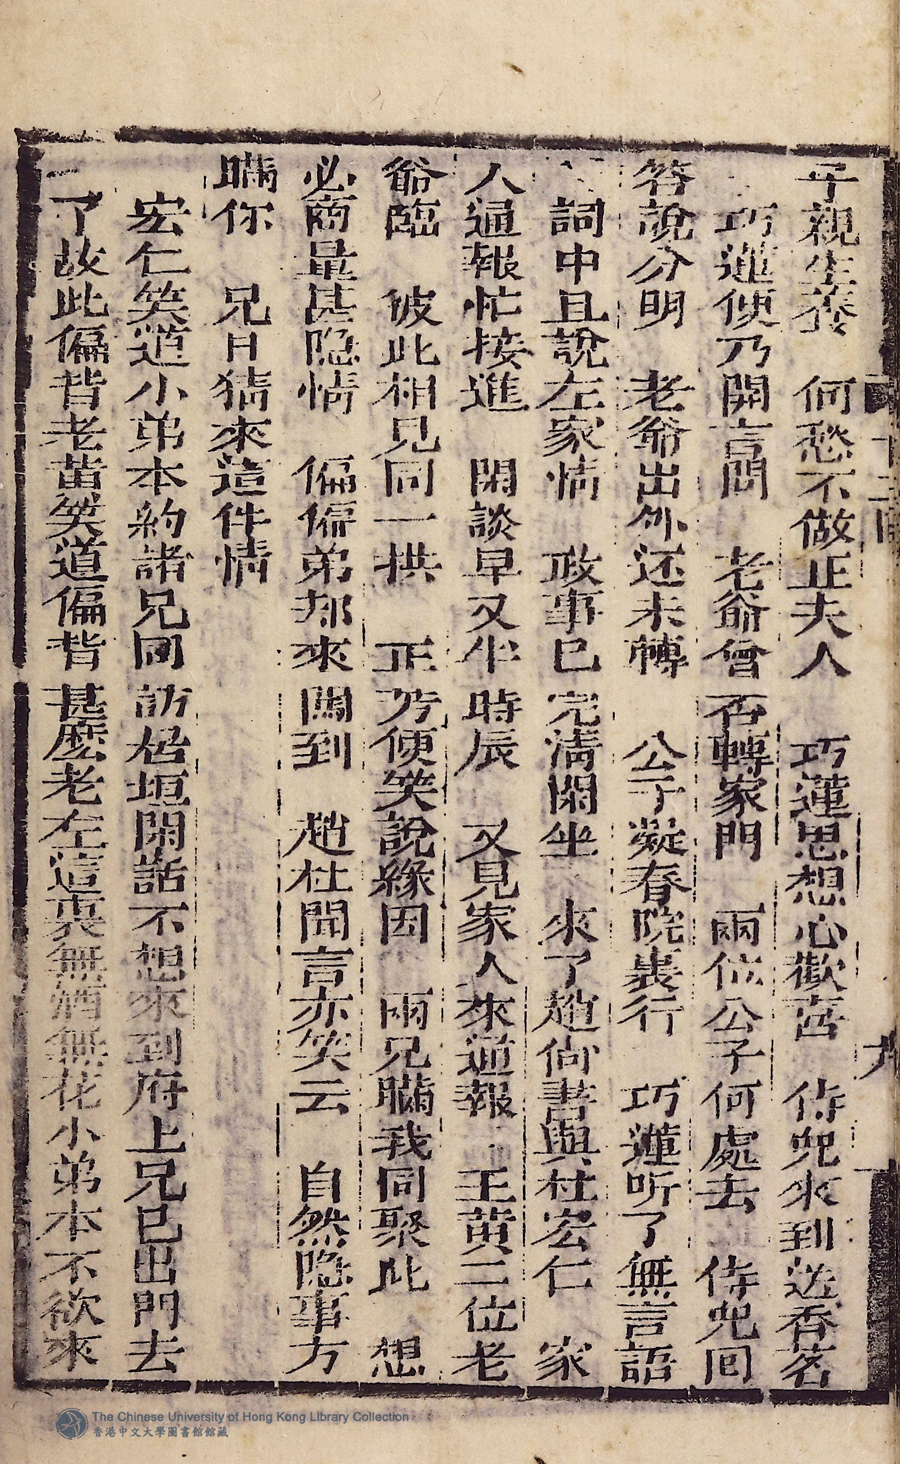 子親生養　何愁不做正夫人　巧蓮思想心歡喜　侍兒來到送香茗
巧蓮便乃開言問　老爺曾否轉家門　兩位公子何處去　侍兒回
答說分明　老爺出外还未轉　公子凝春院裏行　巧蓮听了無言語
詞中且說左家情　政事已完淸閑坐　來了趙尙書與杜宏仁　家
人通報忙接進　閑談早又半時辰　又見家人來通報　王黄二位老
爺臨　彼此相見同一拱　正芳便笑說緣因　兩兄瞞我同聚此　想
必商量甚隐情　偏偏弟却來闖到　趙杜聞言亦笑云　自然隐事方
瞞你　兄日猜來這件情
宏仁笑道小弟本約諸兄同訪居垣閑話不想來到府上兄已出門去
了故此偏背老苗笑道偏背甚麽老左這裏無酒無花小弟本不欲來
九
The Chinese University of Hong Kong Library Collection
香港中文大學圖書館館藏